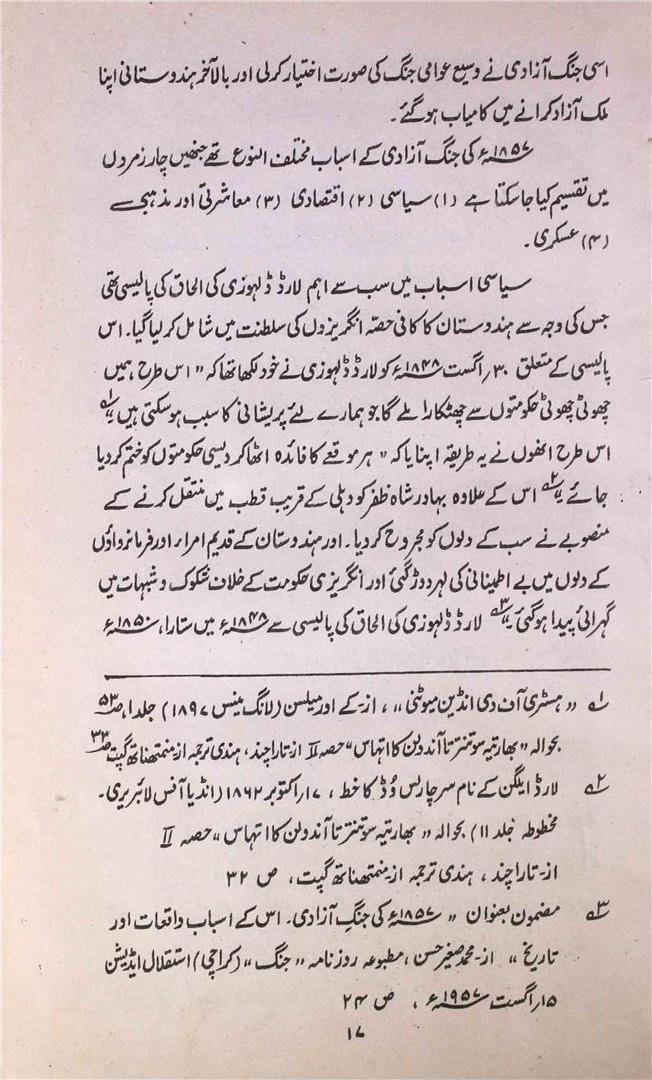 اسی جنگ آزادی نے وسیع عوامی جنگ کی صورت اختیار کر لی اور بالآخر ہندوستانی اپنا
ملک آزاد کرانے میں کامیاب ہو گئے۔
۱۸۵۷ء کی جنگ آزادی کے اسباب مختلف النوع تھے جنھیں چار زمروں
میں تقسیم کیا جا سکتا ہے (۱) سیاسی (۲) اقتصادی (۳) معاشرتی اور مذہبی
(۴) عسکری۔
سیاسی اسباب میں سب سے اہم لارڈ ڈلہوزی کی الحاق کی پالیسی تھی
جس کی وجہ سے ہندوستان کا کافی حصّہ انگریزوں کی سلطنت میں شامل کر لیا گیا۔ اس
پالیسی کے متعلق ۳۰؍ اگست ۱۸۴۸ء کو لارڈ ڈلہوزی نے خود لکھا تھا کہ " اس طرح ہمیں
چھوٹی چھوٹی حکومتوں سے چھٹکارا ملے گا جو ہمارے لئے پریشانی کا سبب ہو سکتی ہیں"۱؎
اس طرح انھوں نے یہ طریقہ اپنایا کہ " ہر موقعے کا فائدہ اٹھا کر دیسی حکومتوں کو ختم کر دیا
جائے"۲؎ اس کے علاوہ بہادر شاہ ظفر کو دہلی کے قریب قطب میں منتقل کرنے کے
منصوبے نے سب کے دلوں کو مجروح کر دیا۔ اور ہندوستان کے قدیم امراء اور فرمانرواؤں
کے دلوں میں بے اطمینانی کی لہر دوڑ گئی اور انگریزی حکومت کے خلاف شکوک و شبہات میں
گہرائی پیدا ہو گئی"۳؎ لارڈ ڈلہوزی کی الحاق کی پالیسی سے ۱۸۴۸ء میں ستارا، ۱۸۵۰ء
۱؎ " ہسٹری آف دی انڈین میوٹنی "، از۔کے اور میلسن (لانگ مینس ۱۸۹۷) جلد ۱، ص ۵۳
بحوالہ " بھارتیہ سوتنترتا آندولن کا اتہاس" حصہ II از تارا چند، ہندی ترجمہ از منمتھناتھ گپت ص ۳۳
۲؎ لارڈ ایلگن کے نام سر چارلس وُڈ کا خط، ۱۷؍ اکتوبر ۱۸۶۲ (انڈیا آفس لائبریری۔
مخطوطہ جلد ۱۱) بحوالہ " بھارتیہ سوتنترتا آندولن کا اتہاس " حصہ II
از۔ تارا چند، ہندی ترجمہ از۔ منمتھناتھ گپت، ص ۳۲
۳؎ مضمون بعنوان " ۱۸۵۷ء کی جنگِ آزادی۔ اس کے اسباب واقعات اور
تاریخ " از۔ محمد صغیر حسن، مطبوعہ روزنامہ " جنگ " (کراچی) استقلال ایڈیشن
۱۵؍ اگست ۱۹۵۷ء، ص ۲۴
۱۷